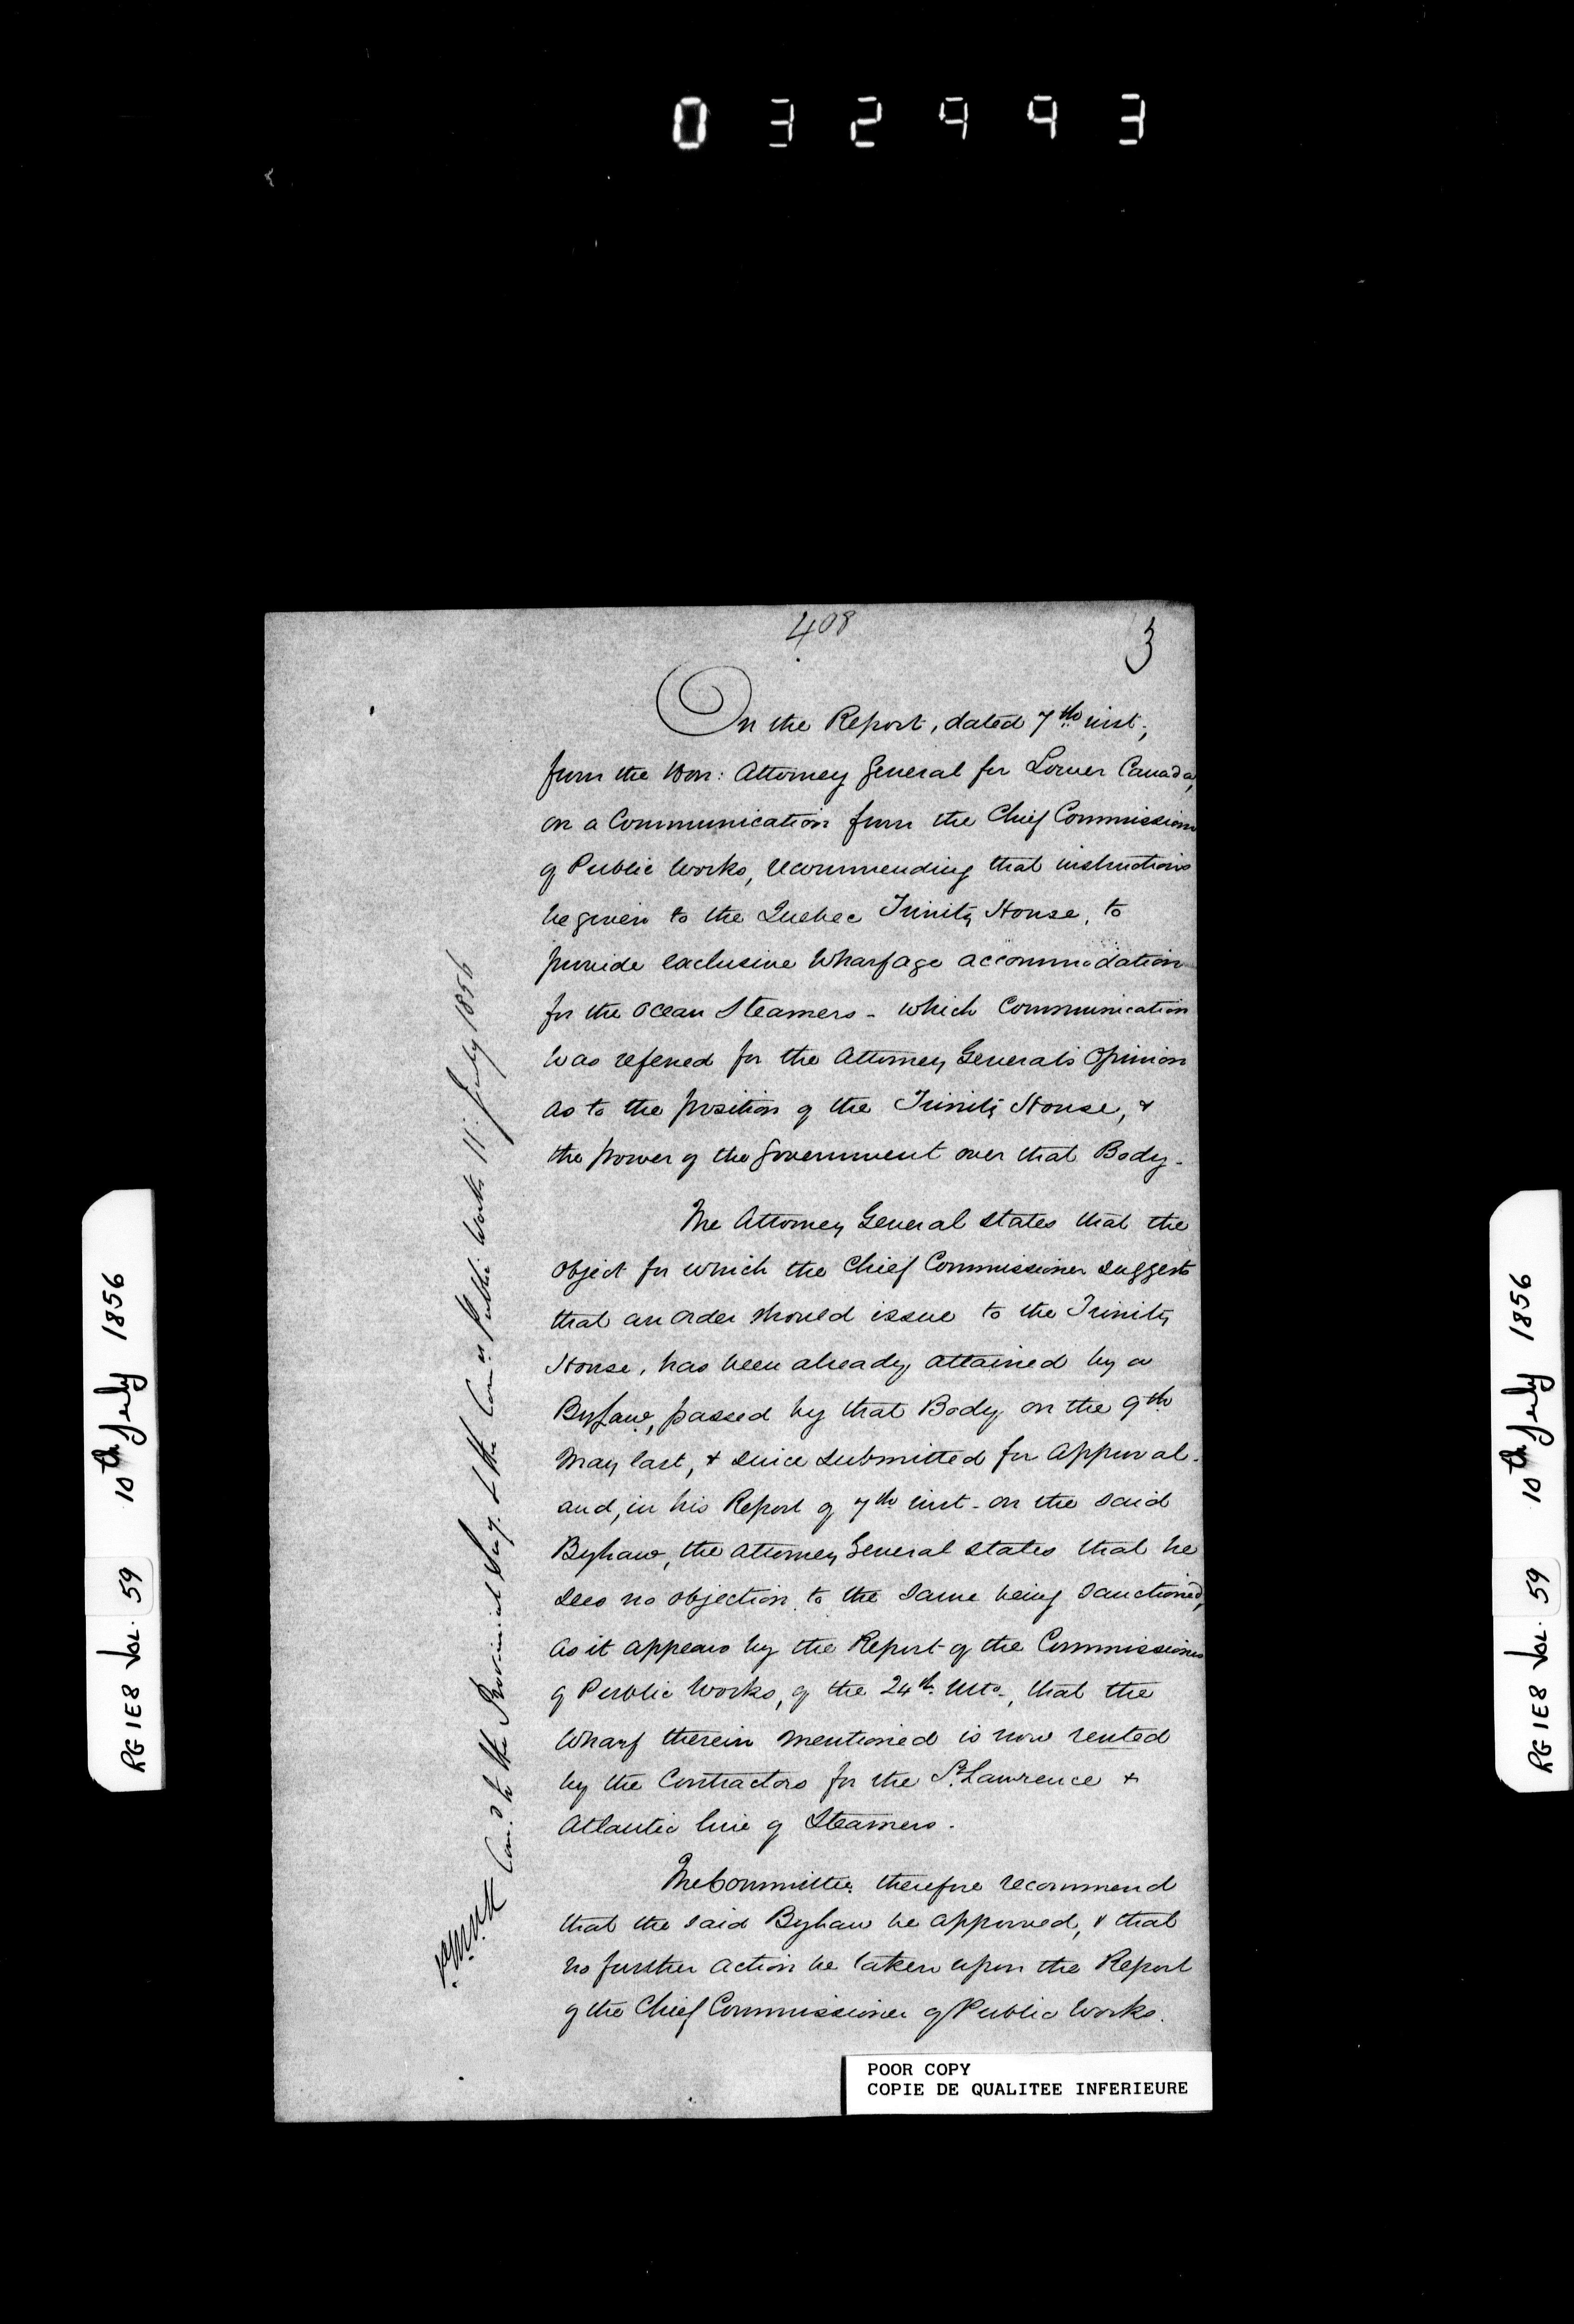 032993
408
3
On the Report, dated 7th inst;
from the Hon: Attorney General for Lower Canada,
on a Communication from the Chief Commissioner
of Public Works, recommending that instructions
be given to the Quebec Trinity House, to
provide exclusive Wharfage accommodation
for the Ocean Steamers - which Communication
was referred for the Attorney General's Opinion
as to the position of the Trinity House, &
the power of the Government over that Body -
The Attorney General states that the
object for which the Chief Commissioner suggests
that an order should issue to the Trinity
House, has been already attained by a
By Law, passed by that Body on the 9th
May last, & since submitted for approval -
and, in his Report of 7th inst - on the said
By Law, the Attorney General states that he
sees no objection to the same being sanctioned,
as it appears by the Report of the Commissioners
of Public Works, of the 24th Ulto -, that the
Wharf therein mentioned is now rented
by the Contractors for the St. Lawrence &
Atlantic line of Steamers.
The Committee therefore recommend
that the said By Law be approved, & that
no further action be taken upon the Report
of the Chief Commissioner of Public Works.
to the Provincial Secy. & the Comrs Public Works 11. July 1856
POOR COPY
COPIE DE QUALITEE INFERIEURE
RG 1E8 Vol. 59 10th July 1856
RG 1E8 Vol. 59 10th July 1856